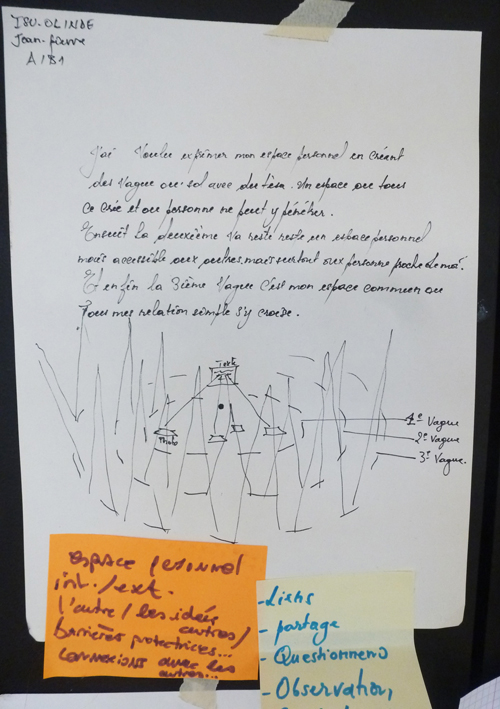 ISU-OLINDE
Jean-pierre
A1B1
J'ai Voulu exprimer mon espace personnel en créant
des Vague au sol avec du tissu. Un espace ou tous
ce crée et ou personne ne peut y pénétrer.
Ensuit la deuxième Va reste reste un espace personnel
mais accessible aux autres, mais surtout aux personne proche de moi.
Et enfin la 3ième Vague c'est mon espace commun ou
Tous mes relation simple s'y croise.
Texte
Photo
1e Vague
2e Vague
3e Vague.
espace personnel
int./ext.
l'autre/les idées
autres/
barrières protectrices...
connexions avec les
autres...
-Liens
- partage
- Questionnens
- Observation,